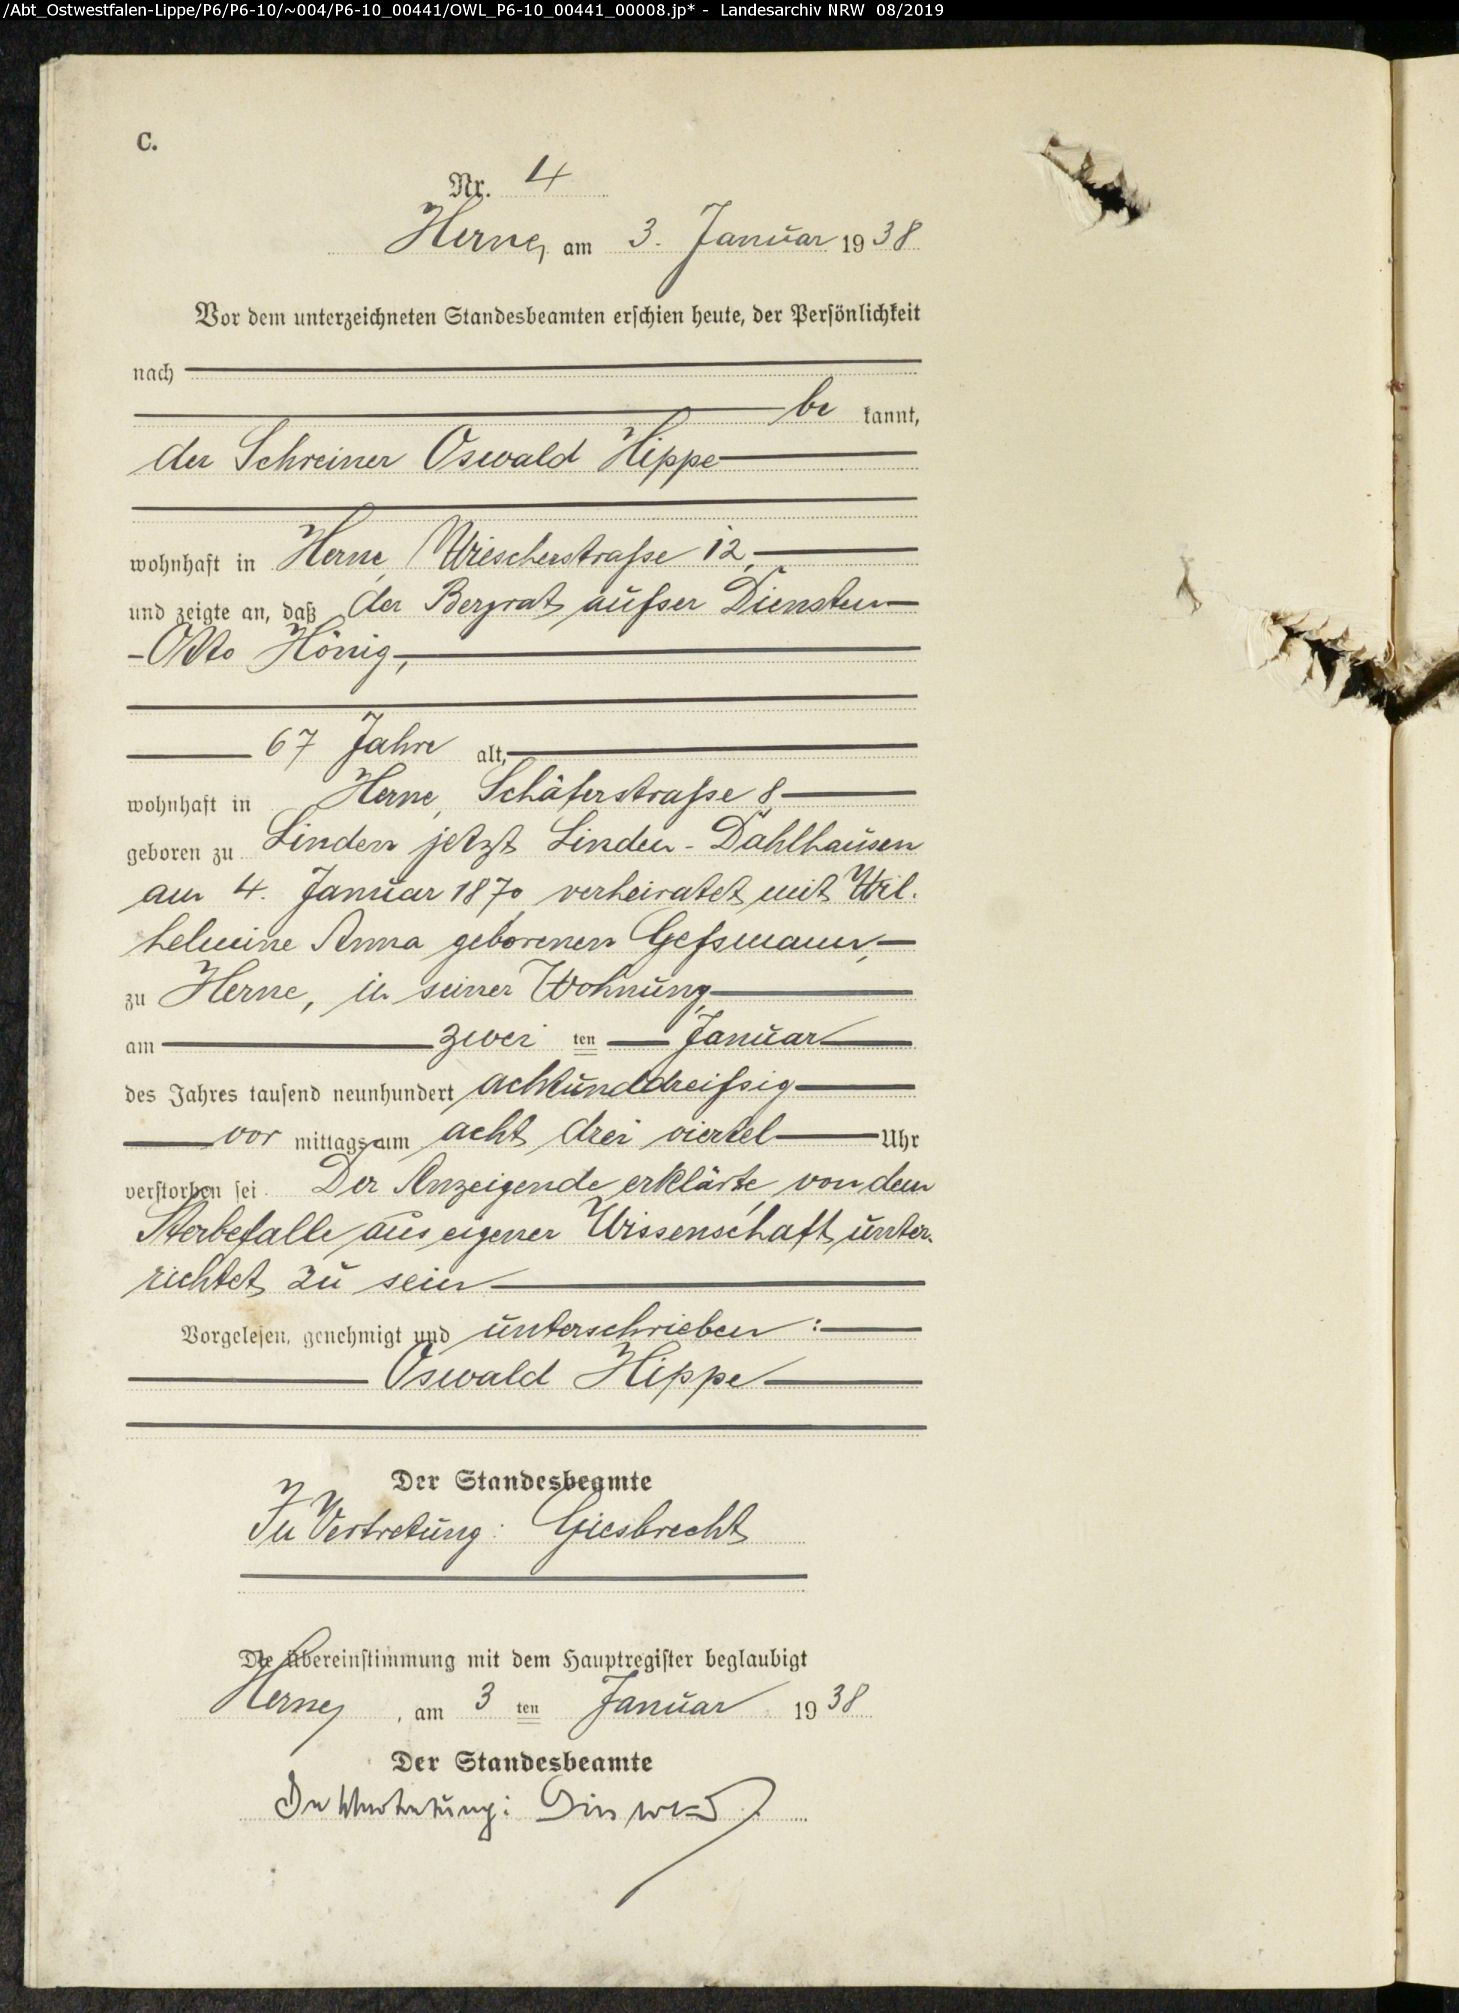 /Abt_Ostwestfalen-Lippe/P6/P6-10/~004/P6-10_00441/OWL_P6-10_00441_00008.jp* - Landesarchiv NRW 08/2019
C.
Nr. 4
Herne, am 3. Januar 1938
Vor dem unterzeichneten Standesbeamten erschien heute, der Persönlichkeit
nach
be kannt,
der Schreiner Oswald Hippe
wohnhaft in Herne, 12,
und zeigte an, daß der Bergrat außer Diensten
Otto Hönig,
67 Jahre alt,
wohnhaft in Herne, Schäferstraße 8
geboren zu Linden jetzt Linden-Dahlhausen
am 4. Januar 1870, verheiratet mit Wil-
helmine Anna geborenen Geßmann,
zu Herne, in seiner Wohnung,
am zwei ten Januar
des Jahres tausend neunhundert achtunddreißig
vor mittags um acht drei viertel Uhr
verstorben sei. Der Anzeigende erklärte, von dem
Sterbefalle aus eigener Wissenschaft unter-
richtet zu sein
Vorgelesen, genehmigt und unterschrieben:
Oswald Hippe
Der Standesbeamte
In Vertretung: Giesbrecht
Die Übereinstimmung mit dem Hauptregister beglaubigt
Herne, am 3 ten Januar 1938
Der Standesbeamte
In Vertretung: